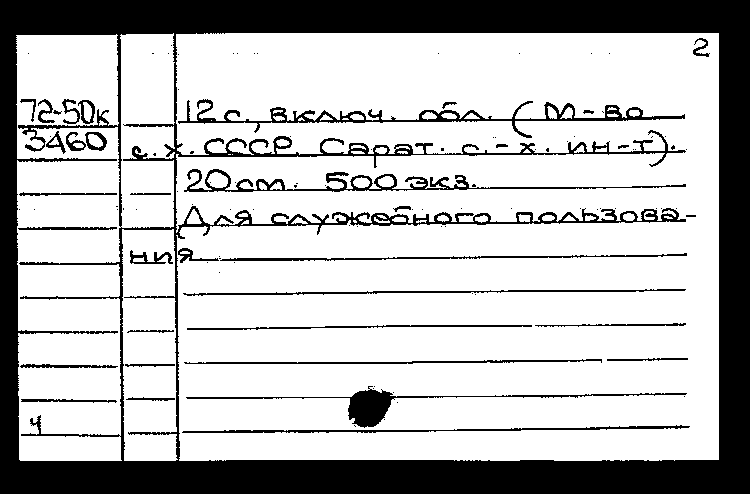 2
72-50к 12 с., включ. обл. (М-во
3460 с.х. СССР. Сарат. с.-х. ин-т).
20 см. 500 экз.
Для служебного пользова-
ния
4